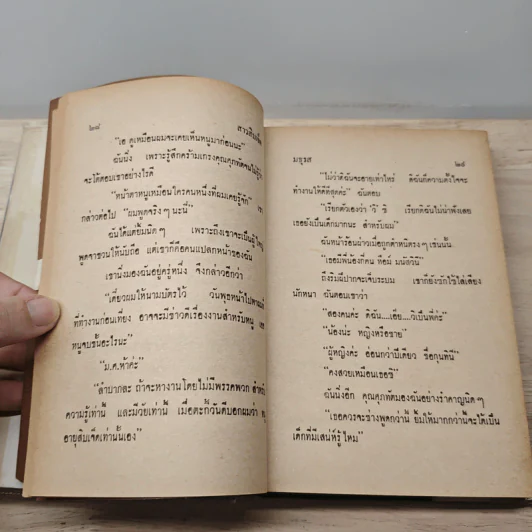 ๒๘
"เอ ดูเหมือนผมจะเคยเห็นหนูมาก่อนนะ"
ฉันนิ่ง เพราะรู้สึกคร้ามเกรงคุณศุภกิตจน
จะโต้ตอบเขาอย่างไรดี
"หน้าตาหนูเหมือนใครคนหนึ่งที่ผมเคยรู้จัก" เขา
กล่าวต่อไป "ผมพูดจริง ๆ นะนี่"
ฉันได้แต่ยิ้มนิด ๆ เพราะถึงเขาจะเป็นผู้ใหญ่
พูดจาชวนให้นับถือ แต่เขาก็คือคนแปลกหน้าของฉัน
เขานั่งมองฉันอยู่ครู่หนึ่ง จึงกล่าวอีกว่า
"เดี๋ยวผมให้นามบัตรไว้ วันพุธหนูไปพบผมที่
ที่ทำงานก่อนเที่ยง อาจจะมีข่าวดีเรื่องงานสำหรับหนู เออ
หนูจบชั้นอะไรนะ"
"ม.ศ.ห้าค่ะ"
"ลำบากละ ถ้าจะหางานโดยไม่มีพรรคพวก สำหรับ
ความรู้เท่านี้ และมีวัยเท่านี้ เมื่อตะกี้วันดีบอกผมว่า
อายุสิบเจ็ดเท่านั้นเอง"
มธุรส
๒๙
"ไม่ว่าดิฉันจะอายุเท่าไหร่ ดิฉันมีความตั้งใจจะ
ทำงานให้ดีที่สุดค่ะ" ฉันตอบ
"เรียกตัวเองว่า 'วี' ซิ เรียกดิฉันไม่น่าฟังเลย
เธอยังเป็นเด็กมากนะ สำหรับผม"
ฉันหน้าร้อนผ่าวเมื่อถูกตำหนิตรง ๆ เช่นนั้น
"เธอมีพี่น้องกี่คน หือม์ มนัสวินี"
ถึงริมฝีปากจะเจ็บระบม เขาก็ยังซักไซ้ไล่เลียง
นักหนา ฉันตอบเขาว่า
"สองคนค่ะ ดิฉัน....เอ๊ย....วีเป็นพี่ค่ะ"
"น้องน่ะ หญิงหรือชาย"
"ผู้หญิงค่ะ อ่อนกว่าปีเดียว ชื่อกุนทินี"
"คงสวยเหมือนเธอซิ"
ฉันนิ่งอีก คุณศุภกิตมองฉันอย่างรำคาญนิด ๆ
"เธอควรจะช่างพูดกว่านี้ ยิ้มให้มากกว่านี้จะได้เป็น
เด็กที่มีเสน่ห์รู้ไหม"